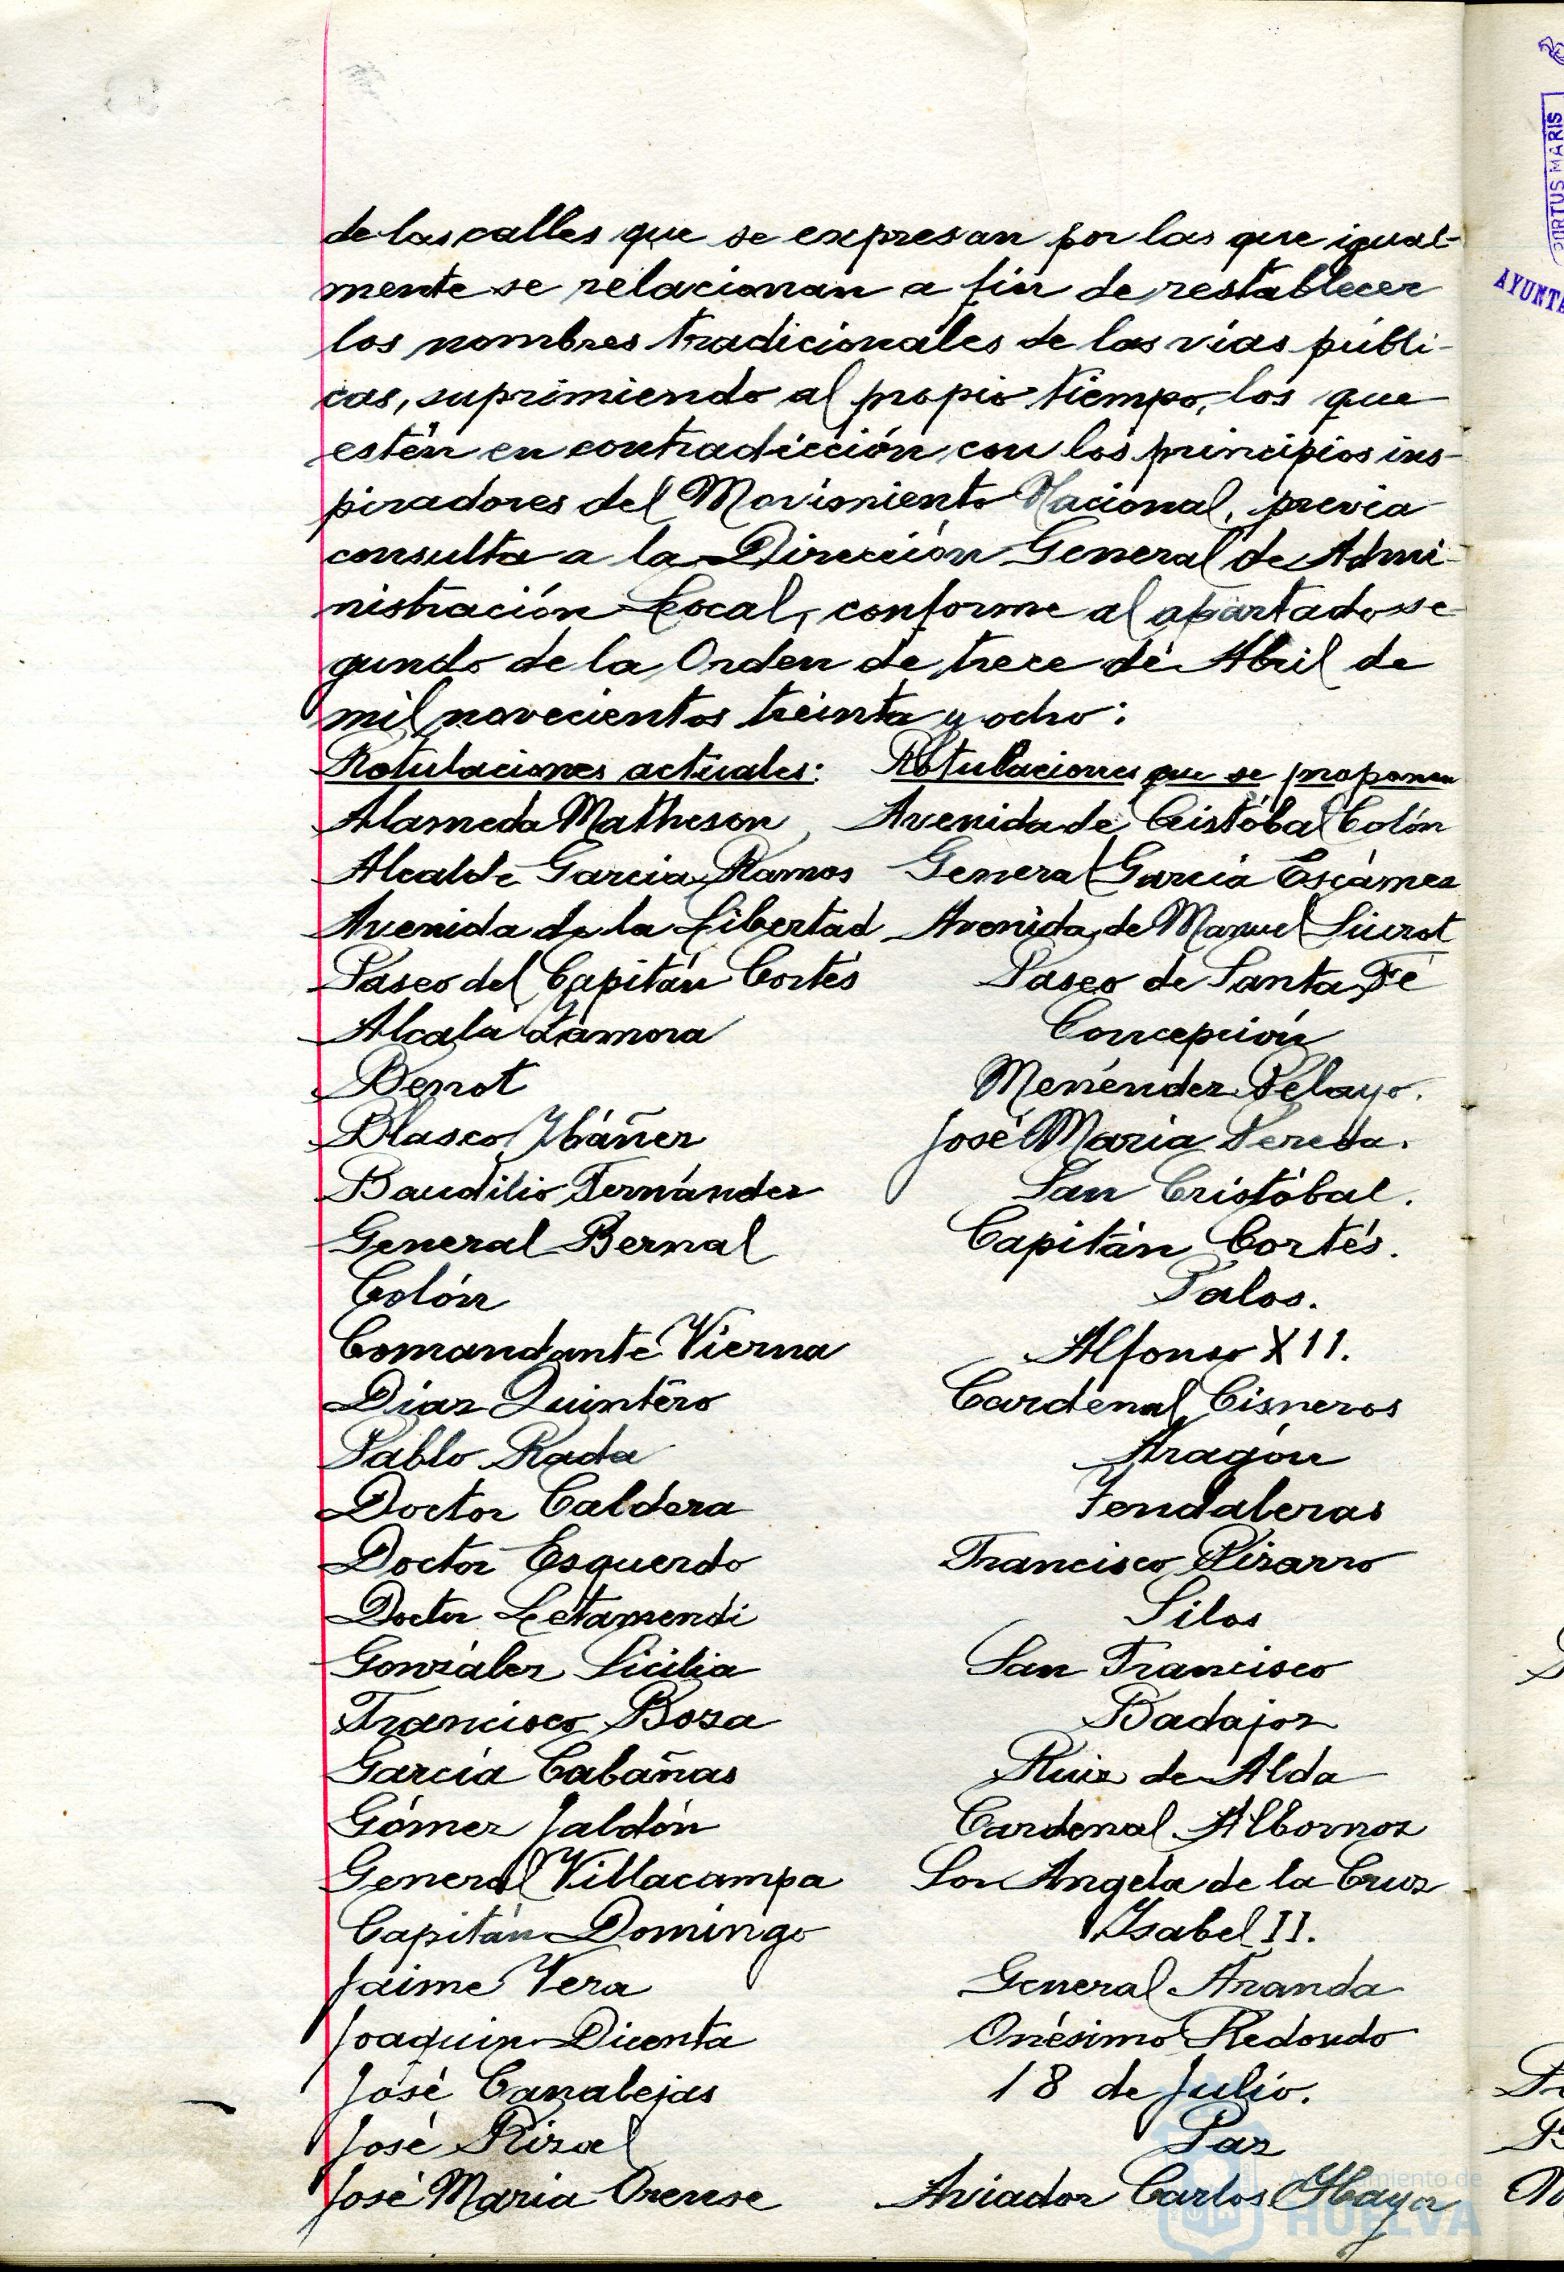 de las calles que se expresan por las que igual-
mente se relacionan a fin de restablecer
los nombres tradicionales de las vías públi-
cas, suprimiendo al propio tiempo, los que
estén en contradicción con los principios ins-
piradores del Movimiento Nacional, previa
consulta a la Dirección General de Admi-
nistración Local, conforme al apartado se-
gundo de la Orden de trece de Abril de
mil novecientos treinta y ocho:
Rotulaciones actuales: Rotulaciones que se proponen
Alameda Matheson Avenida de Cristóbal Colón
Alcalde Garcia Ramos General García Escámez
Avenida de la Libertad Avenida de Manuel Siurot
Paseo del Capitán Cortés Paseo de Santa Fé
Alcala Zamora Concepción
Benot Menéndez Pelayo.
Blasco Ybáñez José Maria Pereda.
Baudilio Fernández San Cristóbal.
General Bernal Capitán Cortés.
Colón Palos.
Comandante Vierna Alfonso XII.
Diaz Quintero Cardenal Cisneros
Pablo Rada Aragón
Doctor Caldera Tendaleras
Doctor Esquerdo Francisco Pizarro
Doctor Letamendi Silos
González Sicilia San Francisco
Francisco Boza Badajoz
García Cabañas Ruiz de Alda
Gómez Jaldón Cardenal Albornoz
General Villacampa Sor Angela de la Cruz
Capitán Domingo Ysabel II.
Jaime Vera General Aranda
Joaquin Dicenta Onésimo Redondo
José Canalejas 18 de Julio.
José Rizal Paz
José Maria Orense Aviador Carlos Haya
PORTUS MARIS
Ayuntamiento de
HUELVA